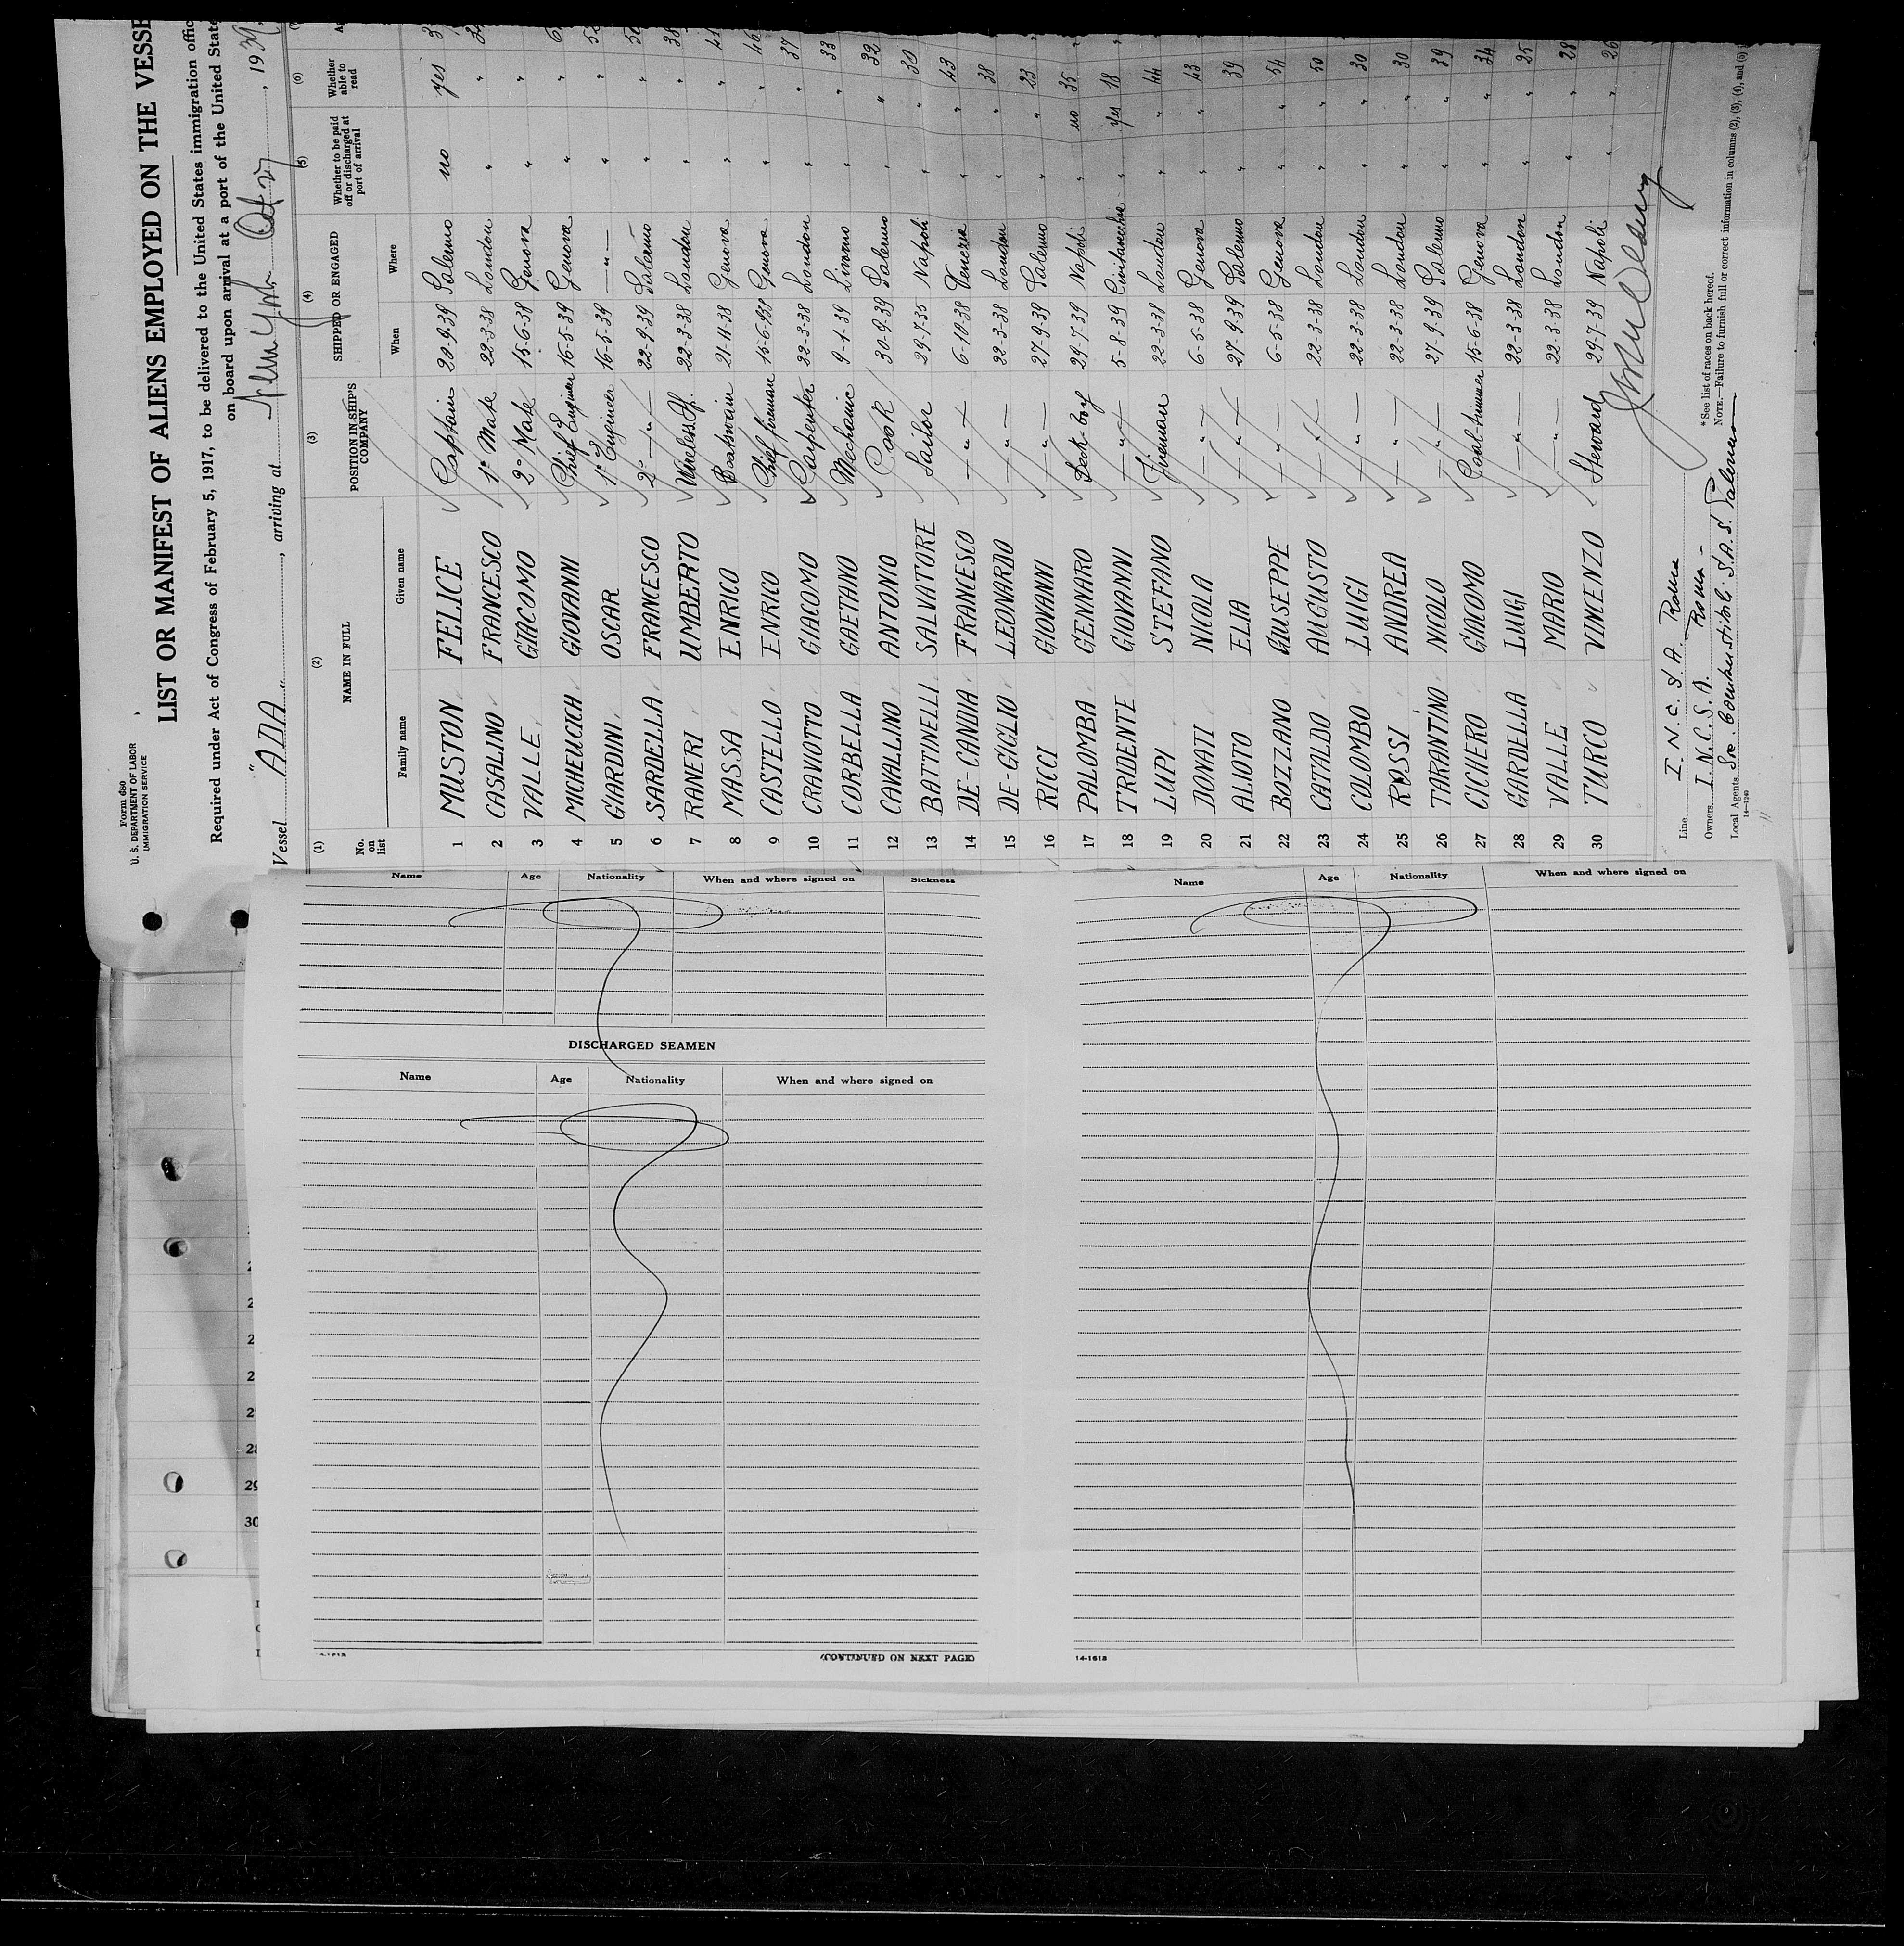 Form 680
U. S. DEPARTMENT OF LABOR
IMMIGRATION SERVICE
LIST OR MANIFEST OF ALIENS EMPLOYED ON THE VESSE
Required under Act of Congress of February 5, 1917, to be delivered to the United States immigration offic
on board upon arrival at a port of the United State
Vessel "ADA", arriving at New York Oct 27, 1939
(1) (2) (3) (4) (5) (6)
No. on list NAME IN FULL POSITION IN SHIP'S COMPANY SHIPPED OR ENGAGED Whether to be paid off or discharged at port of arrival Whether able to read
Family name Given name When Where
1 MUSTON FELICE Captain 20-9-39 Salerno no yes
2 CASALINO FRANCESCO 1° Mate 22-3-38 London " "
3 VALLE GIACOMO 2° Mate 15-6-38 Genova " "
4 MICHEUCICH GIOVANNI Chief Engineer 16-5-39 Genova " "
5 GIARDINI OSCAR 1° Engineer 16-5-39 — " — " "
6 SARDELLA FRANCESCO 2° — " — 22-9-39 Salerno " "
7 RANERI UMBERTO Wireless Off. 22-3-38 London " " 38
8 MASSA ENRICO Boatswain 21-11-38 Genova " " 41
9 CASTELLO ENRICO Chief fireman 15-6-938 Genova " " 46
10 CRAVIOTTO GIACOMO Carpenter 22-3-38 London " " 37
11 CORBELLA GAETANO Mechanic 9-1-39 Livorno " " 33
12 CAVALLINO ANTONIO Cook 30-9-39 Salerno " " 32
13 BATTINELLI SALVATORE Sailor 29-7-35 Napoli " " 30
14 DE-CANDIA FRANCESCO — " — 6-10-38 Venezia " " 43
15 DE-GIGLIO LEONARDO — " — 22-3-38 London " " 38
16 RICCI GIOVANNI — " — 27-9-39 Salerno " " 23
17 PALOMBA GENNARO Deck-boy 29-7-39 Napoli " no 35
18 TRIDENTE GIOVANNI — " — 5-8-39 Civitavecchia " yes 18
19 LUPI STEFANO Fireman 22-3-38 London " " 44
20 DONATI NICOLA — " — 6-5-38 Genova " " 43
21 ALIOTO ELIA — " — 27-9-39 Salerno " " 39
22 BOZZANO GIUSEPPE — " — 6-5-38 Genova " " 54
23 CATALDO AUGUSTO — " — 22-3-38 London " " 50
24 COLOMBO LUIGI — " — 22-3-38 London " " 30
25 ROSSI ANDREA — " — 22-3-38 London " " 30
26 TARANTINO NICOLO — " — 27-9-39 Salerno " " 39
27 CICHERO GIACOMO Coal-trimmer 15-6-38 Genova " " 34
28 GARDELLA LUIGI — " — 22-3-38 London " " 25
29 VALLE MARIO — " — 22-3-38 London " " 28
30 TURCO VINCENZO Steward 29-7-39 Napoli " " 26
Line I. N. C. S. A. Roma
Owners I. N. C. S. A. Roma -
Local Agents Soc. Combustibili S.A.S. Salerno
14—1240
*See list of races on back hereof.
NOTE.—Failure to furnish full or correct information in columns (2), (3), (4), and (5) i
Name Age Nationality When and where signed on Sickness
DISCHARGED SEAMEN
Name Age Nationality When and where signed on
(CONTINUED ON NEXT PAGE)
Name Age Nationality When and where signed on
14-1618
28
29
30